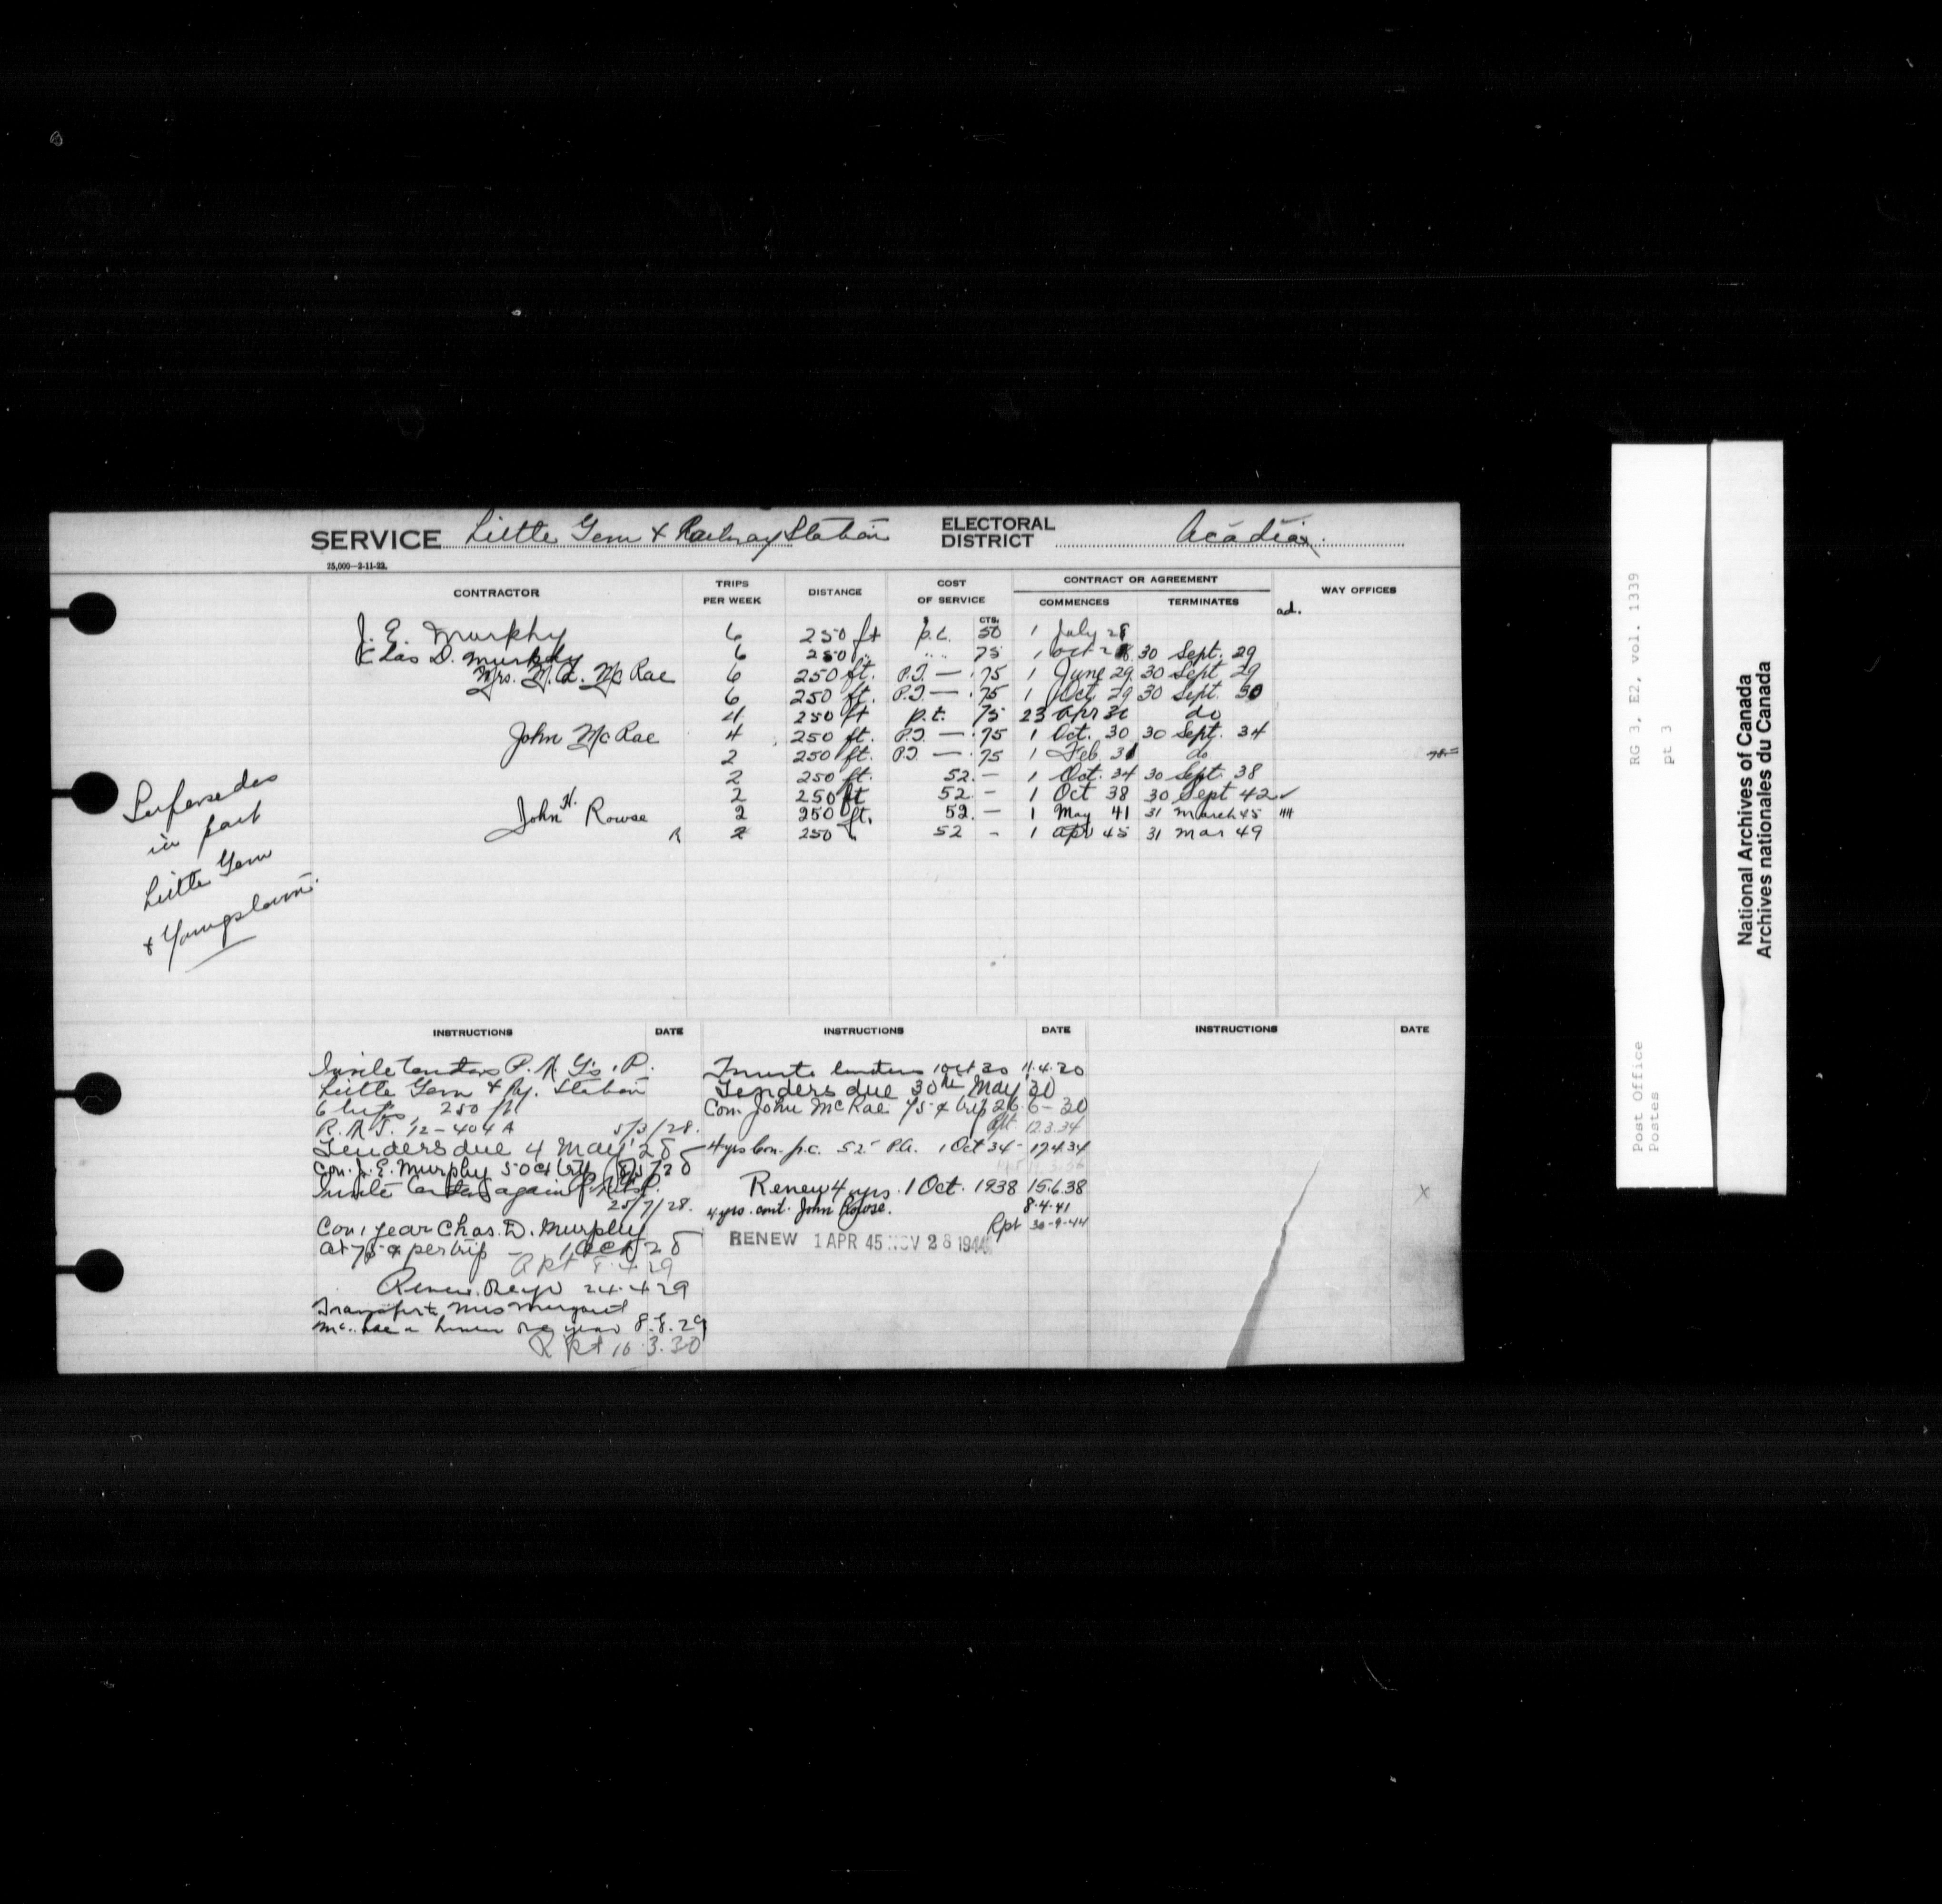 SERVICE Little Gem & Railway Station ELECTORAL DISTRICT Acadia
25,000—2-11-22.
CONTRACTOR TRIPS PER WEEK DISTANCE COST OF SERVICE CONTRACT OR AGREEMENT COMMENCES TERMINATES WAY OFFICES
$ CTS. ad.
J. E. Murphy 6 250 ft p.t. 50 1 July 28
Chas D. Murphy 6 250 " " " 75 1 Oct 28 30 Sept. 29
Mrs. M. A. McRae 6 250 ft. P.T — .75 1 June 29 30 Sept 29
6 250 ft. P.T — .75 1 Oct 29 30 Sept. 30
4 250 ft p.t. 75 23 Apr 30 do
John McRae 4 250 ft. P.T. — .75 1 Oct. 30 30 Sept. 34
2 250 ft. P.T — .75 1 Feb 31 do
2 250 ft. 52.— 1 Oct. 34 30 Sept. 38
2 250 ft 52 — 1 Oct 38 30 Sept 42 ✓
John H. Rowse 2 250 ft. 52.— 1 May 41 31 March 45
R 2 250 52 - 1 Apr 45 31 Mar 49
Supersedes
in part
Little Gem
& Youngstown
INSTRUCTIONS DATE INSTRUCTIONS DATE INSTRUCTIONS DATE
Invite tenders
Little Gem & Ry. Station
6 trips, 250 ft
12-404A 5/3/28.
Tenders due 4 May '28
Con. J. E. Murphy 50 ct try
Invite tenders again
25/7/28.
Con 1 year Chas. D. Murphy
at 75 ¢ per trip - 1 Oct 28
Rpt 8.4.29
Renew 24.4.29
Transfer to Mrs Margaret
McRae & renew one year 8.8.29
Rpt 10.3.30
Invite tenders 1 Oct 30 11.4.30
Tenders due 30th May '30
Con. John McRae 75 ¢ trip 26.6-30
Rpt. 12.3.34
4 yrs Con. 52 P.A. 1 Oct 34- 17.4.34
Renew 4 yrs. 1 Oct. 1938 15.6.38
4 yrs. cont. John Rowse. 8.4.41
Rpt 30-9-44
RENEW 1 APR 45 NOV 28 1944
X
Post Office RG 3, E2, vol. 1339
Postes pt 3
National Archives of Canada
Archives nationales du Canada